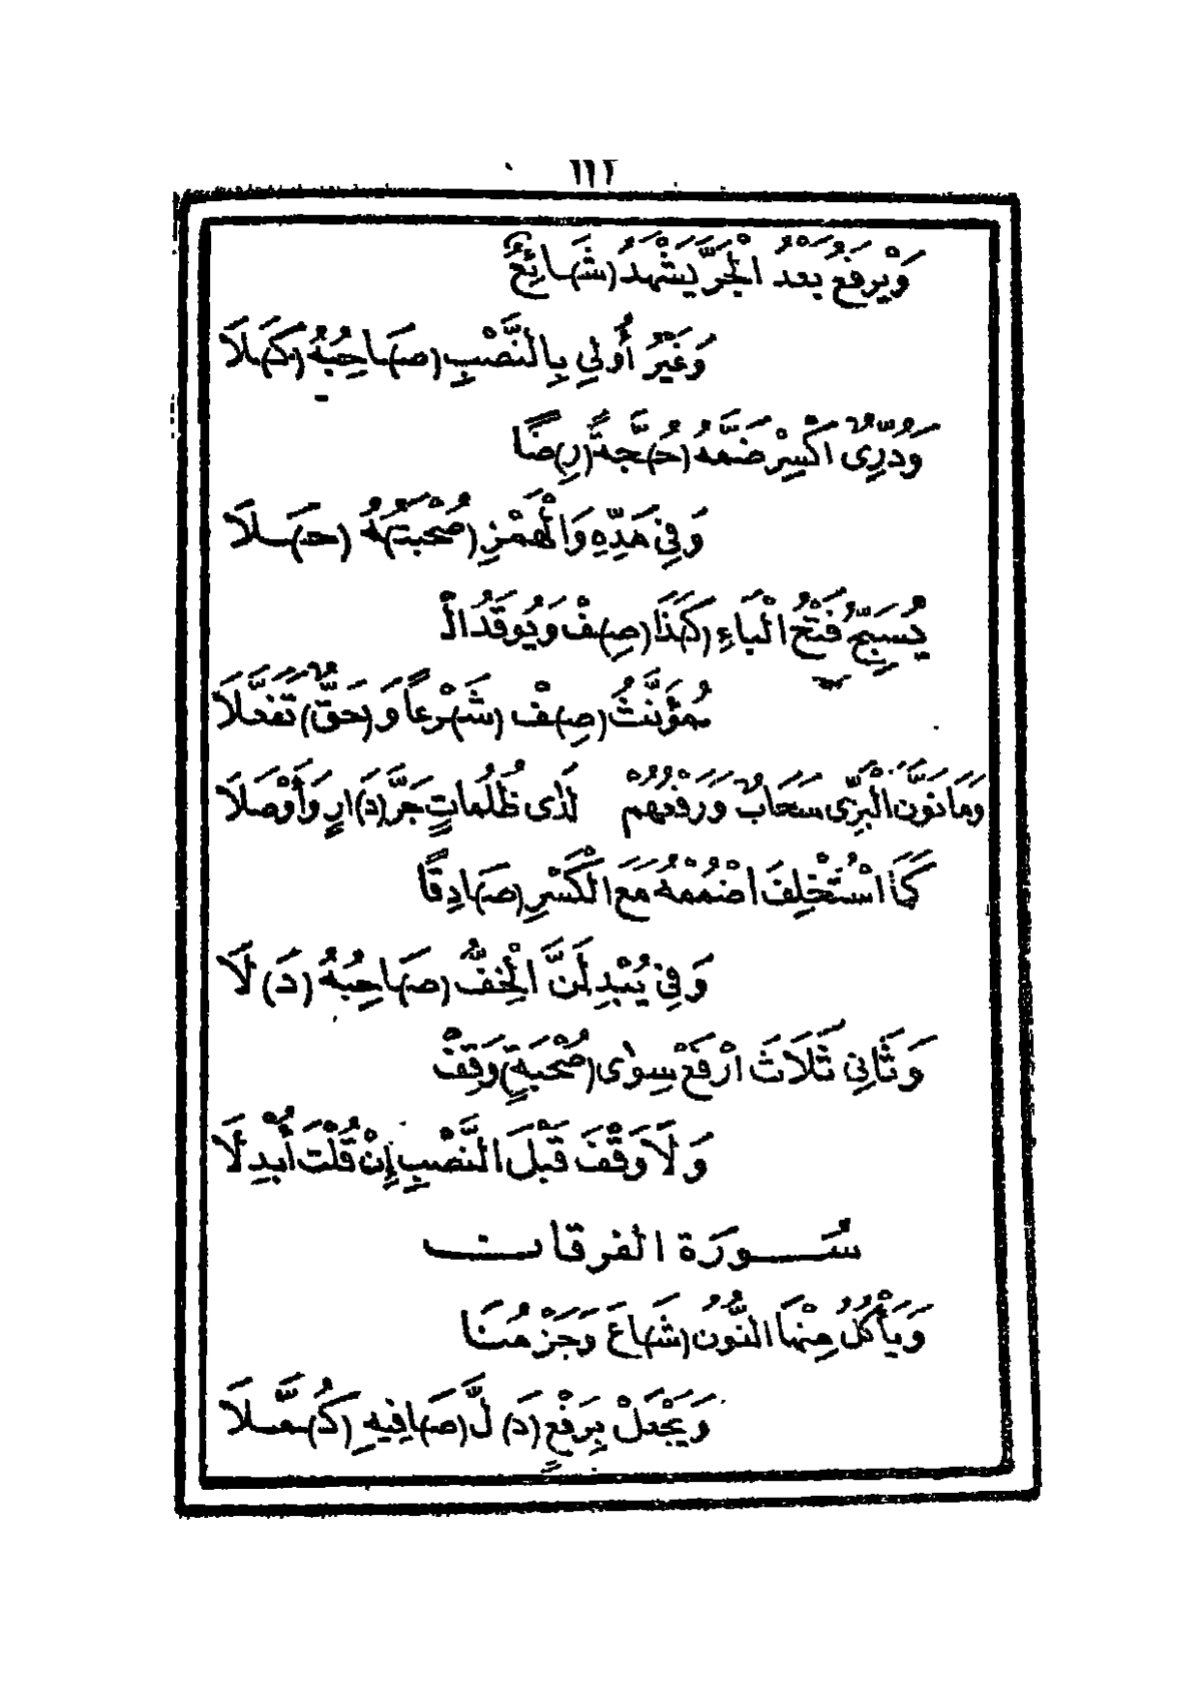 ١١٢
وَيَرْفَعُ بَعْدُ الْجَرَّ يَشْهَدُ (شَ)ائِعٌ
وَغَيْرُ أُولِي بِالنَّصْبِ (صَ)احِبُهُ (كَ)لَا
وَدُرِّىٌّ اكْسِرْ ضَمَّهُ (حُ)جَّةً (رِ)ضًا
وَفِي مَدِّهِ وَالْهَمْزِ (صُحْبَتُ)هُ (حَ)لَا
يُسَبِّحُ فَتْحُ الْبَاءِ (كَ)ذَا (صِ)فْ وَيُوقَدُ الْ
مُؤَنَّثُ (صِ)فْ (شَ)رْعًا وَ(حَقٌّ) تَفَعَّلَا
وَمَا نَوَّنَ الْبَزِّى سَحَابٌ وَرَفْعُهُمْ لَدَى ظُلُمَاتٍ جَرَّ (دَ)ارٍ وَأَوْصَلَا
كَمَا اسْتُخْلِفَ اضْمُمْهُ مَعَ الْكَسْرِ (صَ)ادِقًا
وَفِي يُبْدِلَنَّ الْخِفُّ (صَ)احِبُهُ (دَ)لَا
وَثَانِي ثَلَاثَ ارْفَعْ سِوٰى (صُحْبَةٍ) وَقِفْ
وَلَا وَقْفَ قَبْلَ النَّصْبِ إِنْ قُلْتَ أُبْدِلَا
سُورَة الفرقان
وَيَأْكُلُ مِنْهَا النُّونُ (شَ)اعَ وَجَزْمُنَا
وَيَجْعَلْ بِرَفْعٍ (دَ)لَّ (صَ)افِيهِ (كُ)مَّلَا